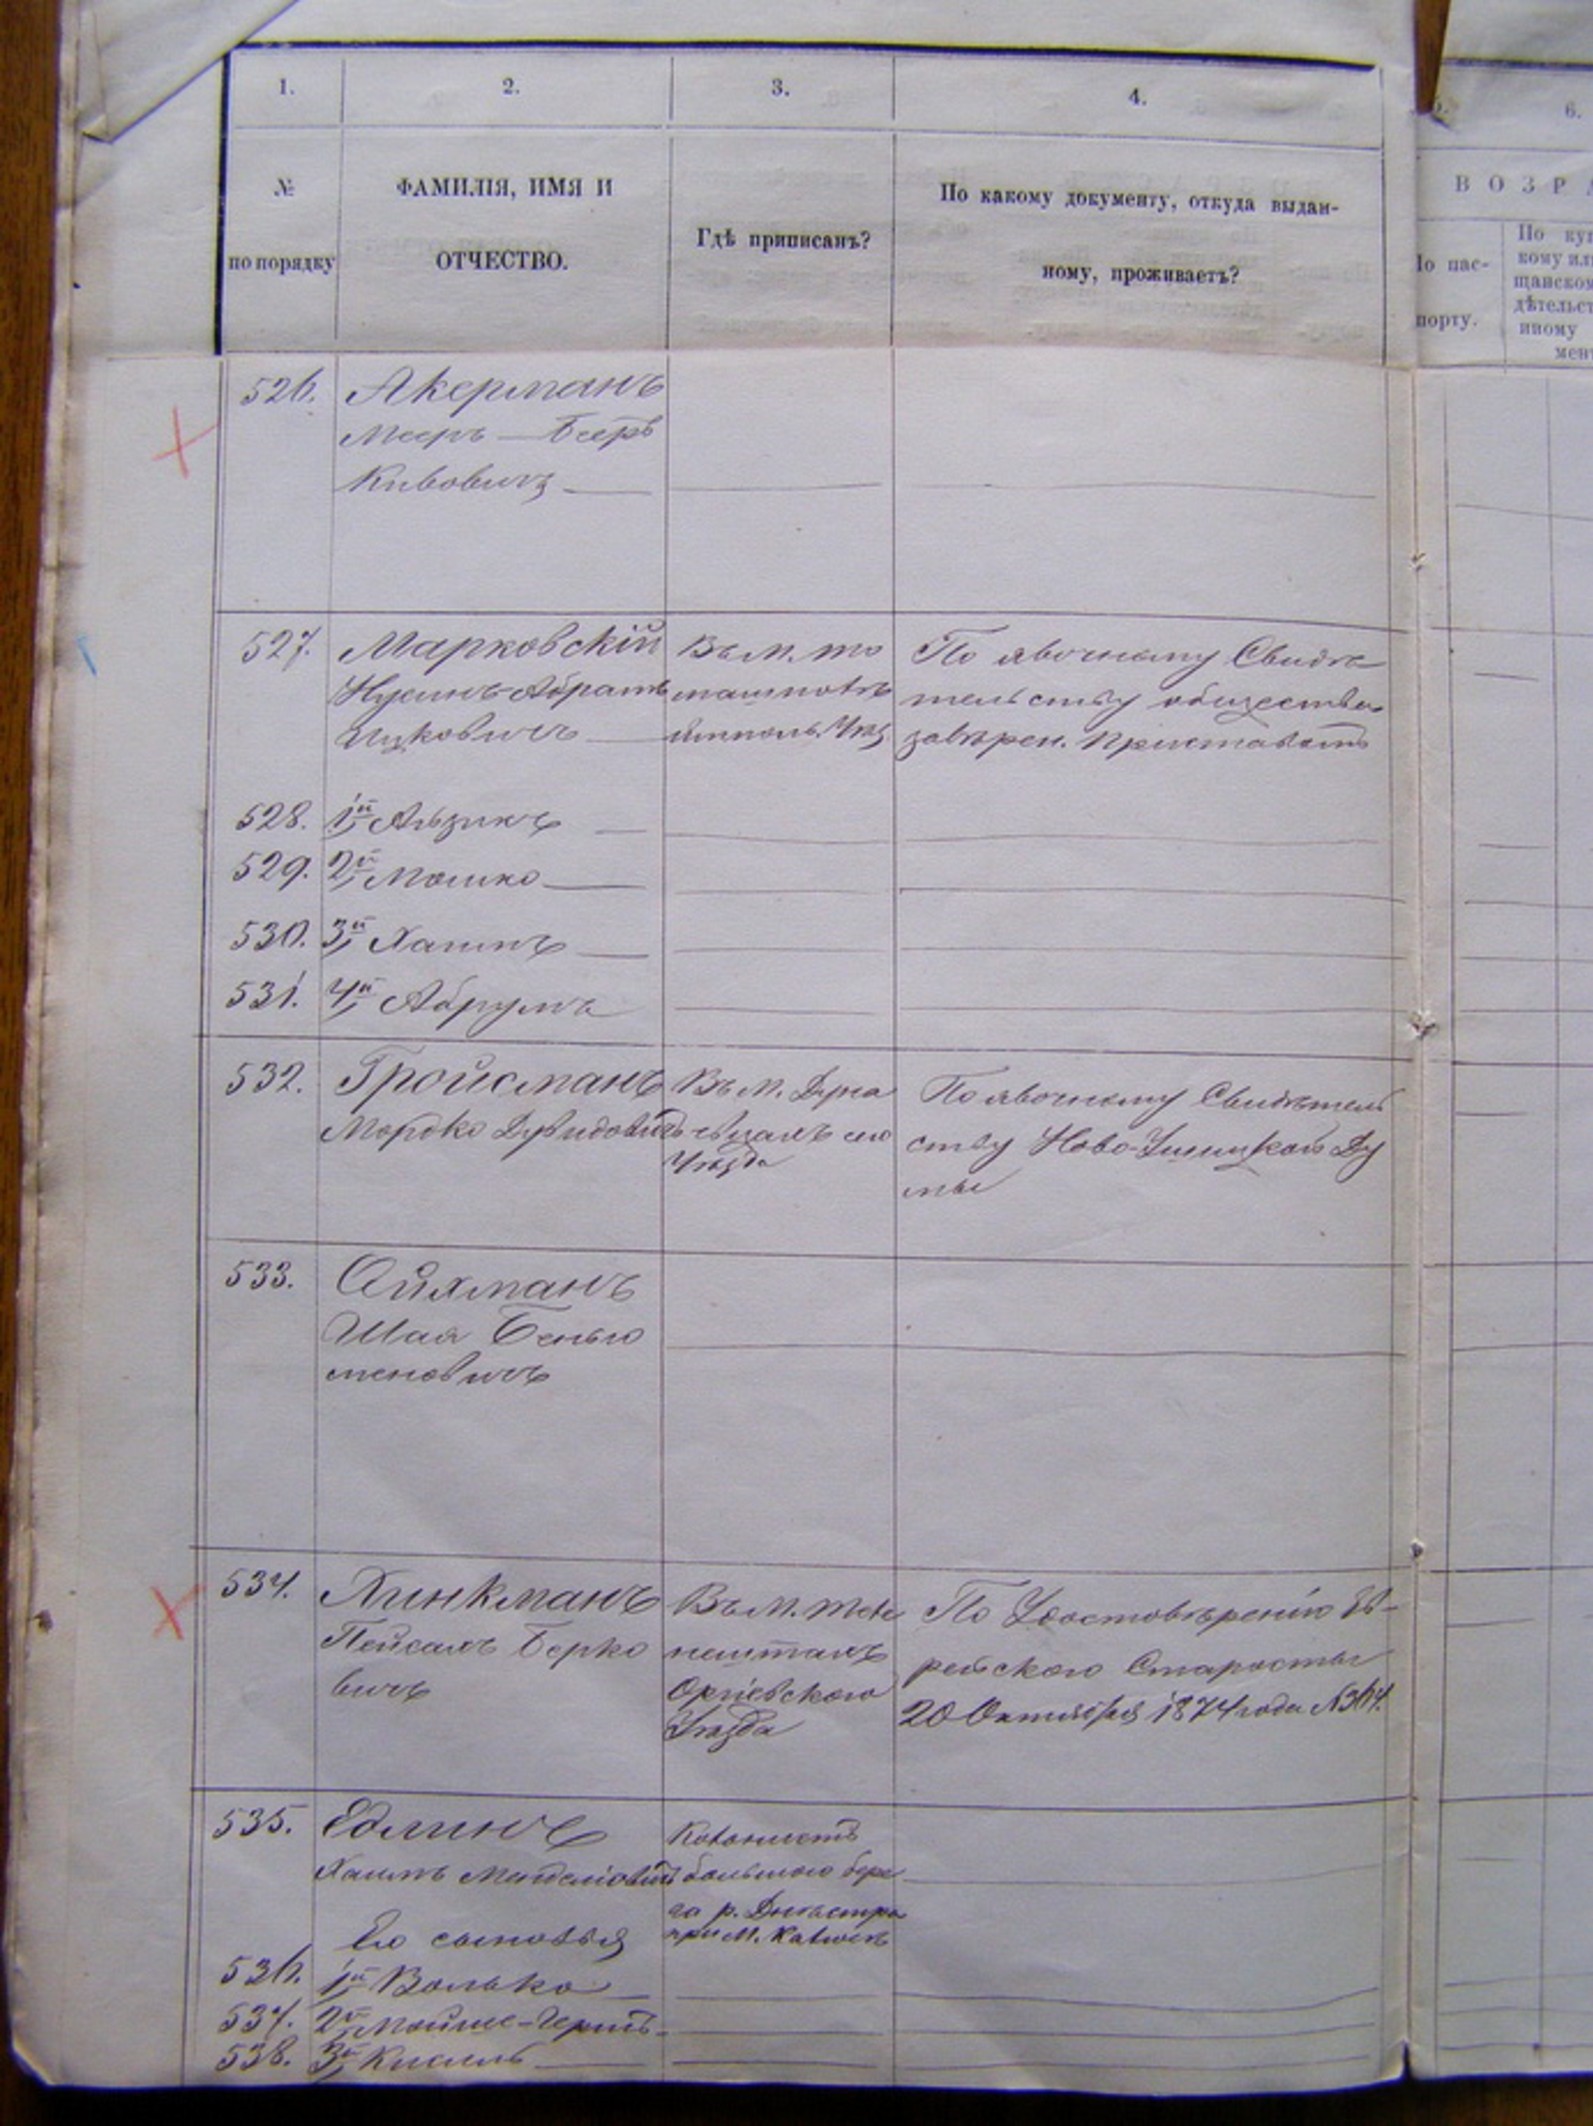 1.
2.
3.
4.
6.
№
по порядку
ФАМИЛІЯ, ИМЯ И
ОТЧЕСТВО.
Гдѣ приписанъ?
По какому документу, откуда выдан-
ному, проживаетъ?
ВОЗРА
По пас-
порту.
По куп
кому или
щанском
дѣтельст
иному
мент
526. Акерманъ
Мееръ — Беръ
Кивовичъ
527. Марковскій
Нусинъ-Абрамъ
Ицковичъ
Въ М. То
машполѣ
Ямполь. Уѣз
По явочному Свидѣ
тельству общества
завѣрен. Приставомъ
528. 1й Айзикъ
529. 2й Мошко
530. 3й Хаимъ
531. 4й Абрумъ
532. Гройсманъ
Мордко Дувидовичъ
Въ М.
Уѣзда
По явочному Свидѣтель
ству Ново-Ушицкой Ду
мы
533. Ойхманъ
Шая Бенью
меновичъ
534. Хинкманъ
Пейсахъ Берко
вичъ
Въ М. Теле
нештахъ
Оргіевскаго
Уѣзда
По Удостовѣренію Ев-
рейскаго Старосты
20 Октября 1874 года №364.
535. Едлинъ
Хаимъ Менделіовичъ
Колонистъ
большого бере
га р. Днѣстра
при М. Калюсѣ
Его сыновья
536. 1й Волько
537. 2й Мойше-Гершъ
538. 3й Кисиль